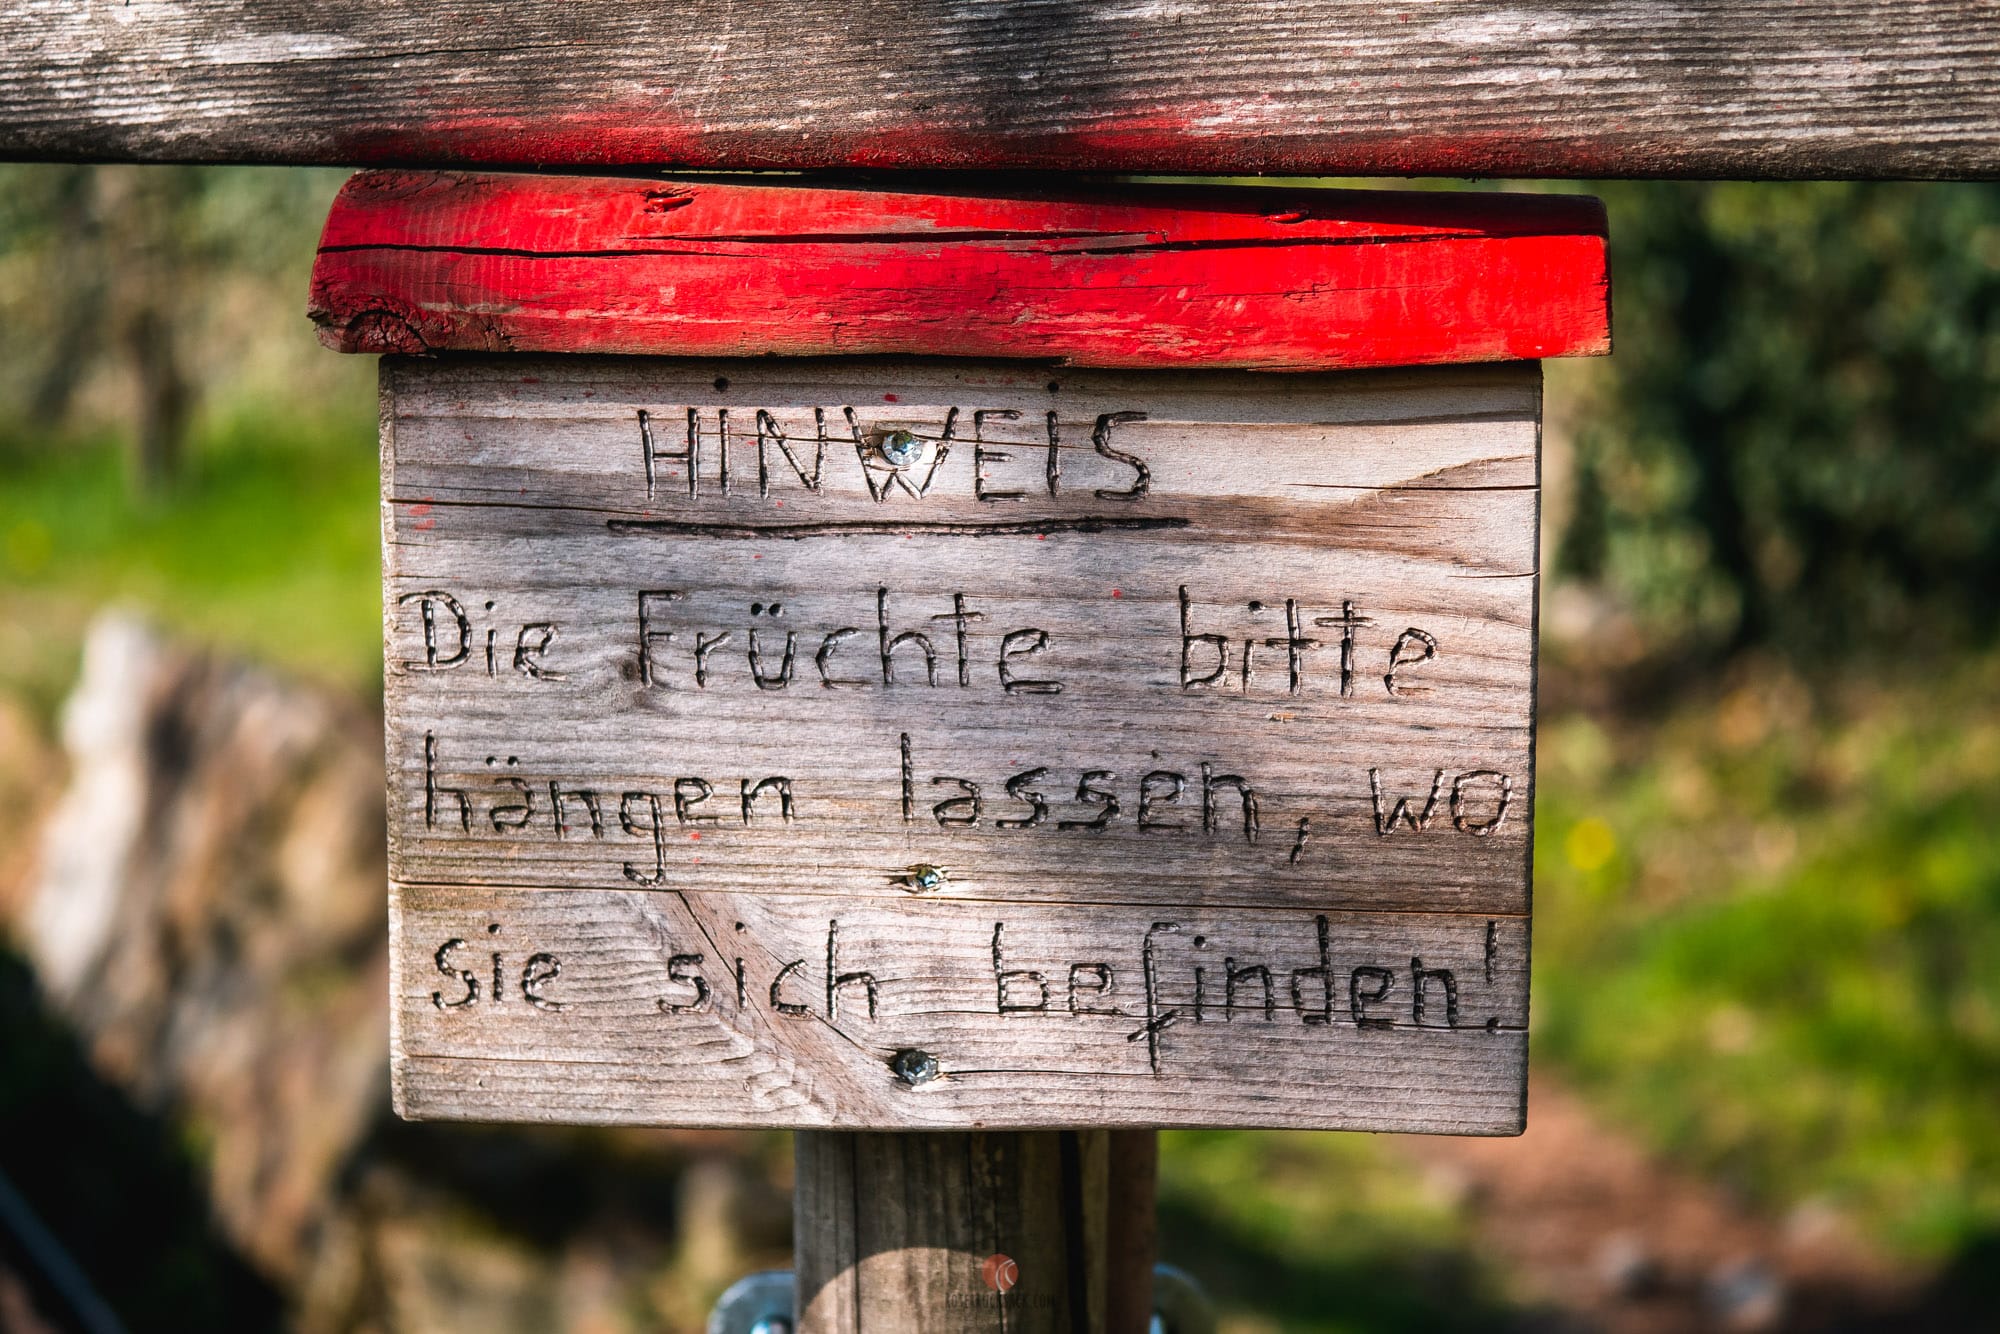 HINWEIS
Die Früchte bitte
hängen lassen, wo
sie sich befinden!